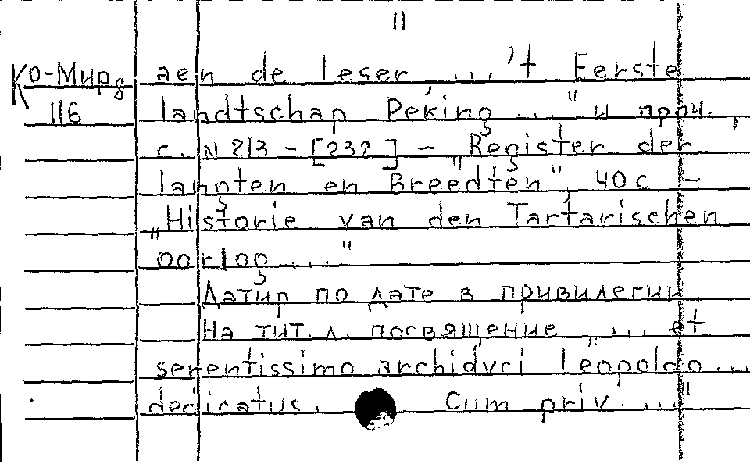 II
Ко-Мир8 aen de leser, ... 't Eerste
116 landtschap Peking ... " и проч.,
с. N 213 - [232] - "Register der
langten en Breedten", 40 с -
"Historie van den Tartarischen
oorlog ... "
Датир по дате в привилегии
На тит. л. посвящение "... et
serentissimo archiduci Leopoldo ...
dedicatus. Cum priv ... "